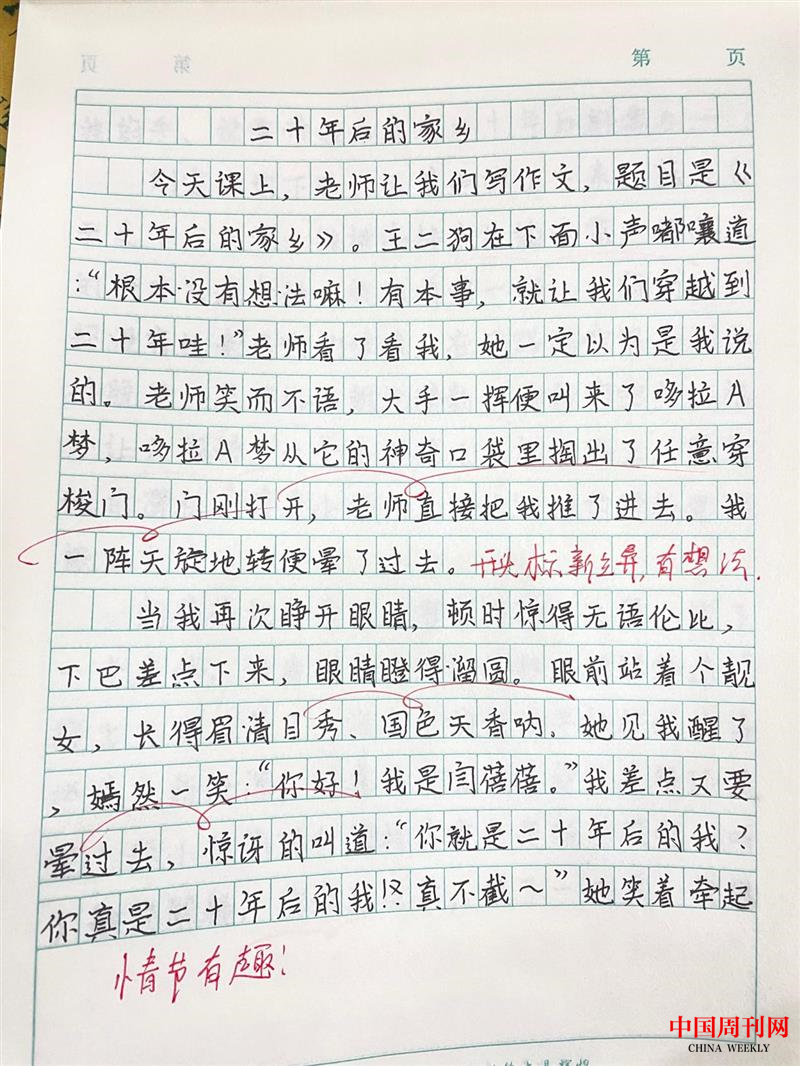 第 页
二十年后的家乡
今天课上，老师让我们写作文，题目是《
二十年后的家乡》。王二狗在下面小声嘟囔道
：“根本没有想法嘛！有本事，就让我们穿越到
二十年哇！”老师看了看我，她一定以为是我说
的。老师笑而不语，大手一挥便叫来了哆拉A
梦，哆拉A梦从它的神奇口袋里掏出了任意穿
梭门。门刚打开，老师直接把我推了进去。我
一阵天旋地转便晕了过去。
开头标新立异，有想法.
当我再次睁开眼睛，顿时惊得无语伦比，
下巴差点下来，眼睛瞪得溜圆。眼前站着个靓
女，长得眉清目秀、国色天香呐，她见我醒了
，嫣然一笑：“你好！我是闫蓓蓓。”我差点又要
晕过去，惊讶的叫道：“你就是二十年后的我？
你真是二十年后的我!?真不截～”她笑着牵起
情节有趣！
中国周刊网
CHINA WEEKLY